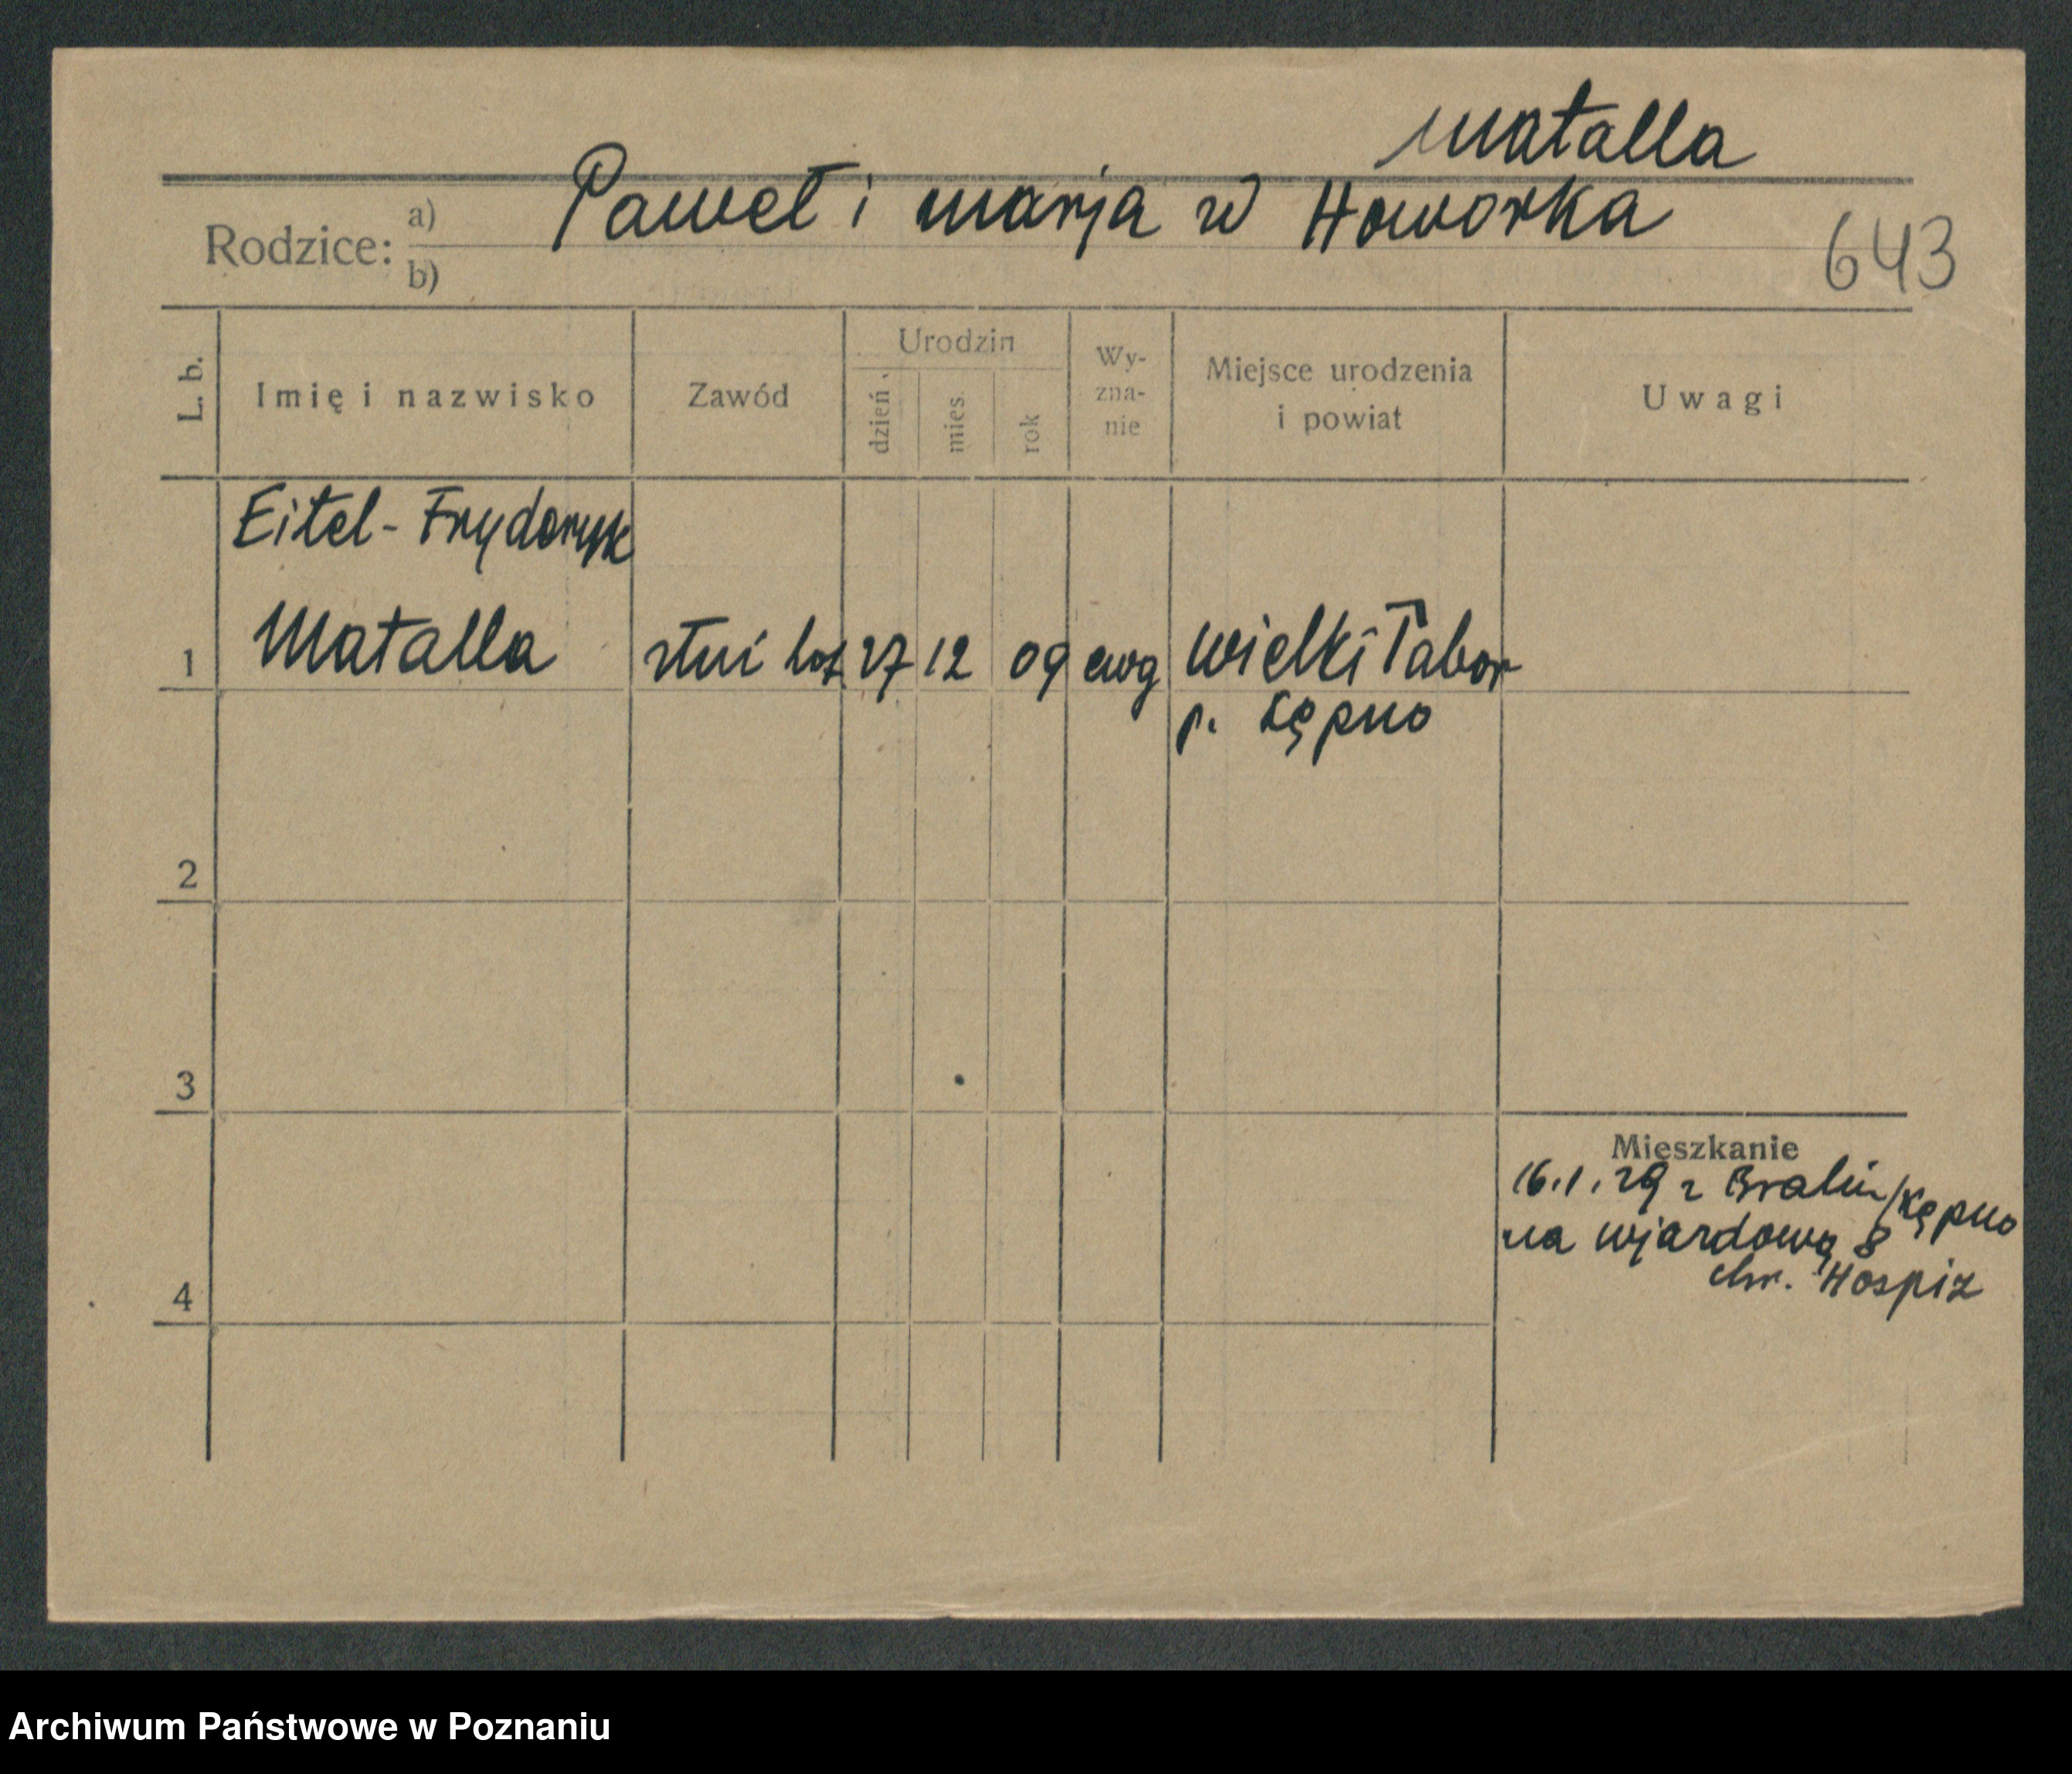 Matalla
Rodzice: a) Paweł i Marja w Howorka
b)
643
L. b.
Imię i nazwisko
Zawód
Urodzin
dzień
mies.
rok
Wy-
zna-
nie
Miejsce urodzenia
i powiat
Uwagi
Eitel-Fryderyk
1 Matalla 27 12 09 ewg Wielki Tabor
p. Kępno
2
3
Mieszkanie
16.1.29 z Bralin/Kępno
na Wjazdową 8
chr. Hospiz
4
Archiwum Państwowe w Poznaniu